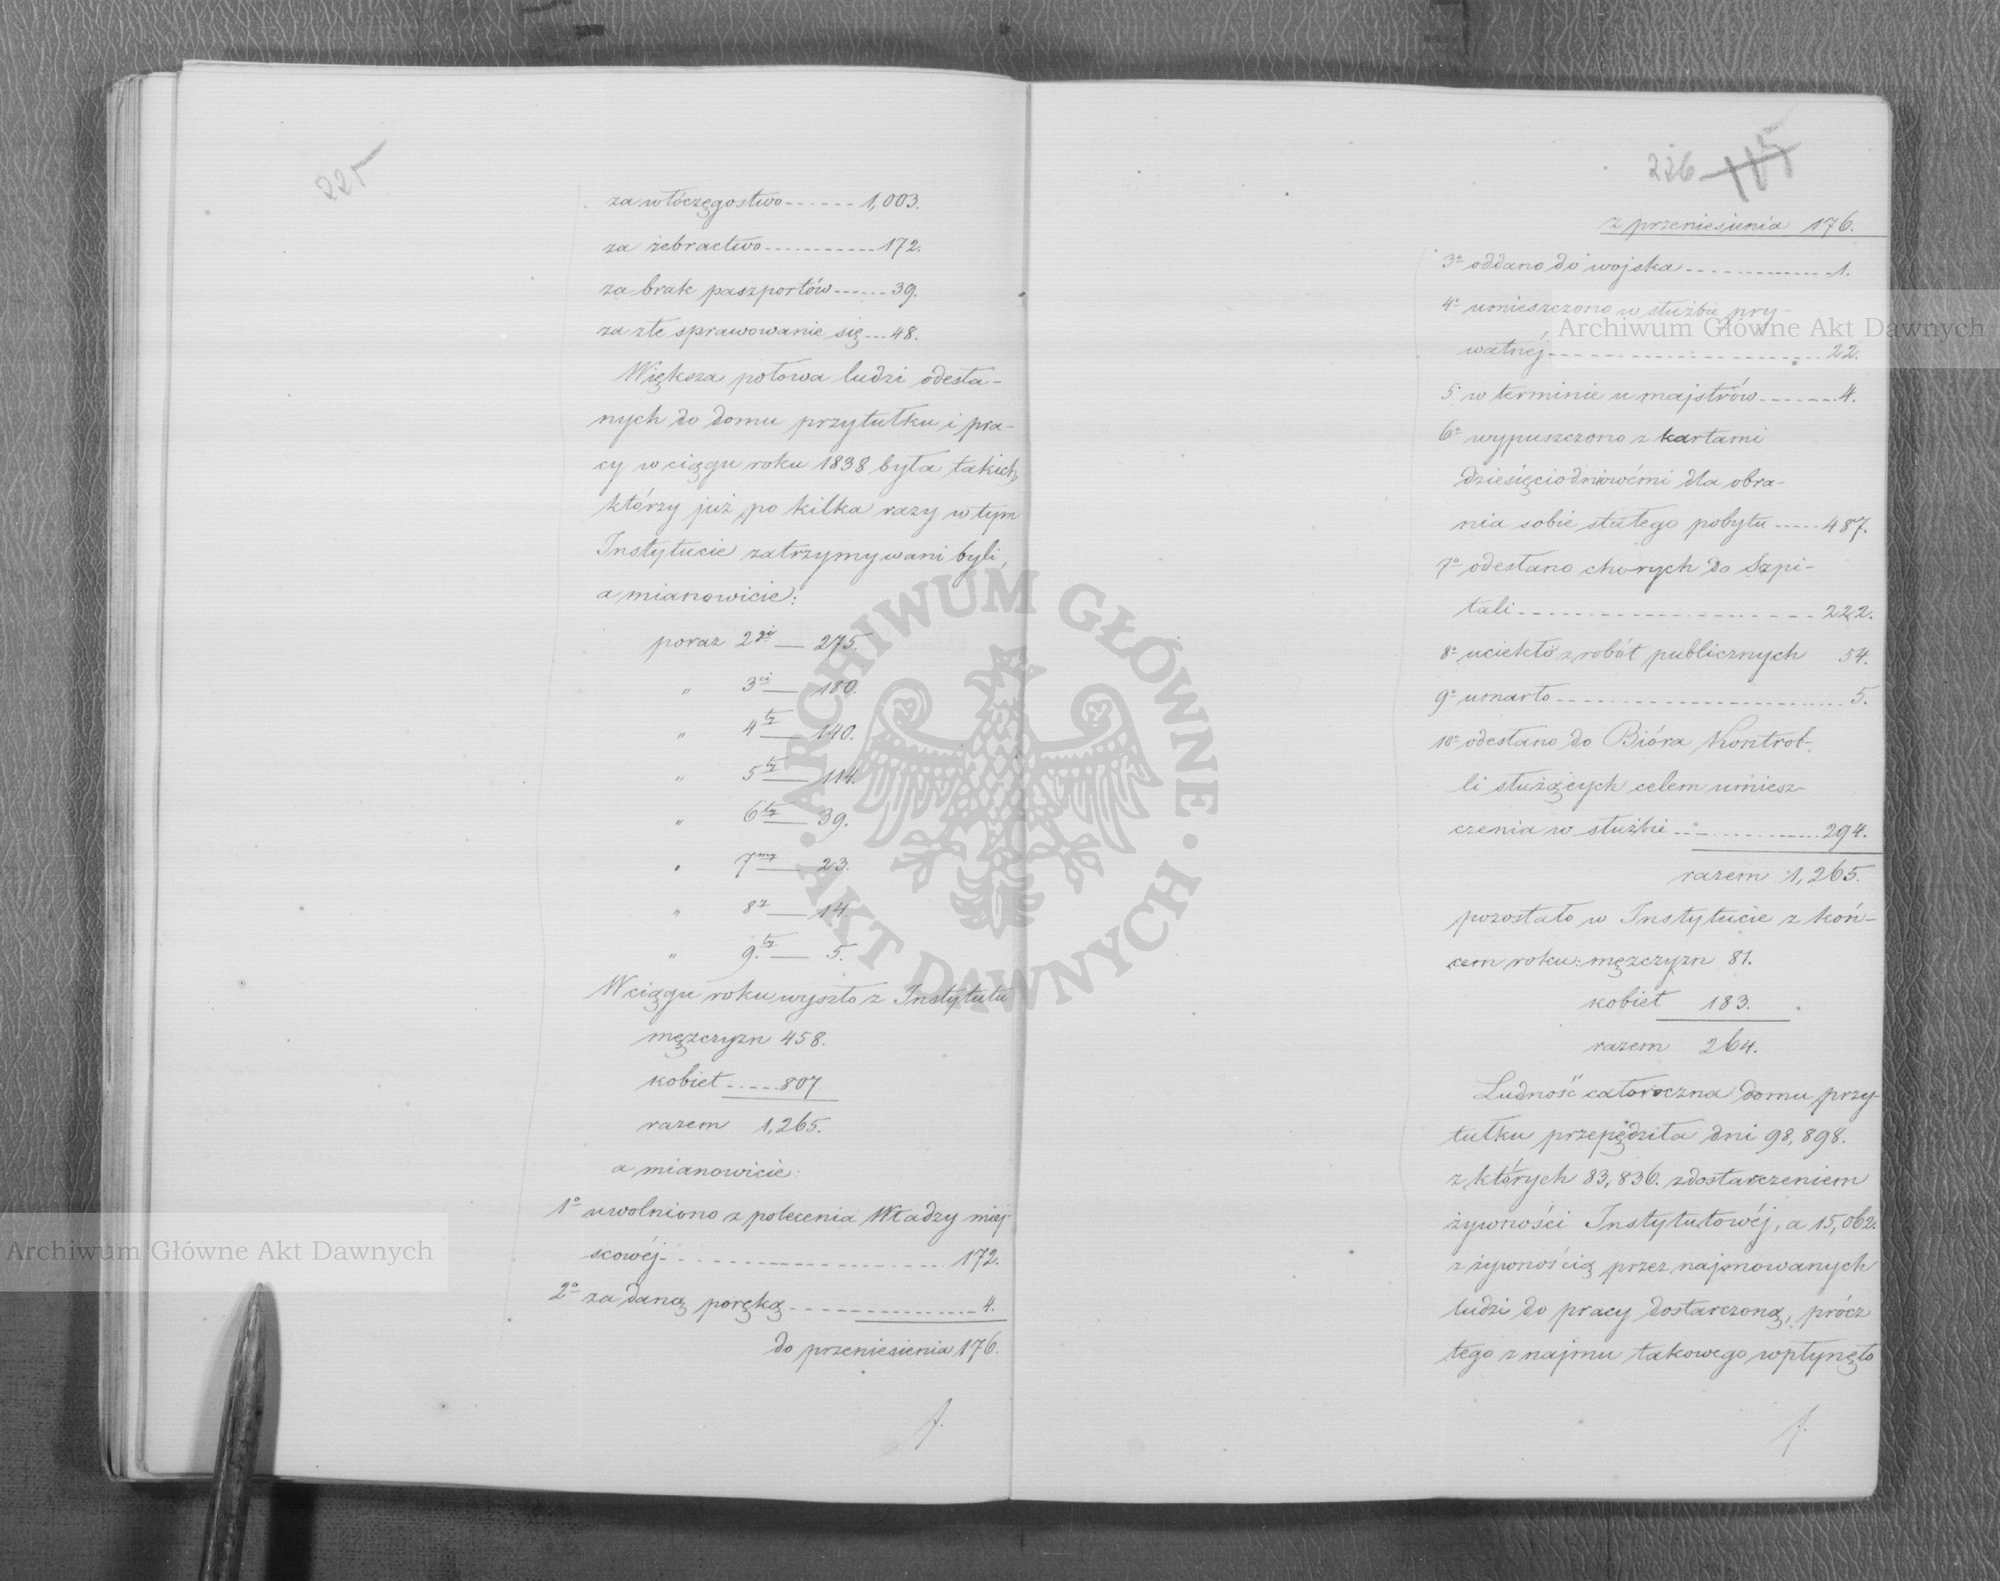 225
za włóczęgostwo ------ 1,003.
za żebractwo ----------- 172.
za brak paszportów ------ 39.
za złe sprawowanie się --- 48.
Większa połowa ludzi odesła-
nych do domu przytułku i pra-
cy w ciągu roku 1838 była takich,
którzy już po kilka razy w tym
Instytucie zatrzymywani byli,
a mianowicie:
poraz 2gi — 275.
" 3ci — 180.
" 4ty — 140.
" 5ty — 114.
" 6ty — 39.
" 7my — 23.
" 8y — 14.
" 9.ty — 5.
W ciągu roku wyszło z Instytutu
mężczyzn 458.
kobiet ------ 807
razem 1,265.
a mianowicie:
1o uwolniono z polecenia Władzy miej-
scowéj ---------------------- 172.
2o za daną poręką ---------------- 4.
do przeniesienia 176.
226 115
z przeniesienia 176.
3o oddano do wojska -------------- 1.
4o umieszczono w służbie pry-
watnéj ------------------------ 22.
5 w terminie u majstrów ------- 4.
6o wypuszczono z kartami
dziesięciodniowémi dla obra-
nia sobie stałego pobytu ----- 487.
7o odesłano chorych do Szpi-
tali --------------------------- 222.
8o uciekło z robót publicznych 54.
9o umarło -------------------------- 5.
10o odesłano do Bióra Kontrol-
li służących celem umiesz-
czenia w służbie -------------- 294.
razem 1,265.
pozostało w Instytucie z koń-
cem roku: mężczyzn 81.
kobiet 183.
razem 264.
Ludność całoroczna domu przy-
tułku przepędziła dni 98,898.
z których 83,836. z dostarczeniem
żywności Instytutowéj, a 15,062.
z żywnością przez najmowanych
ludzi do pracy dostarczoną, prócz
tego z najmu takowego wpłynęło
Archiwum Główne Akt Dawnych
Archiwum Główne Akt Dawnych
ARCHIWUM GŁÓWNE · AKT DAWNYCH ·